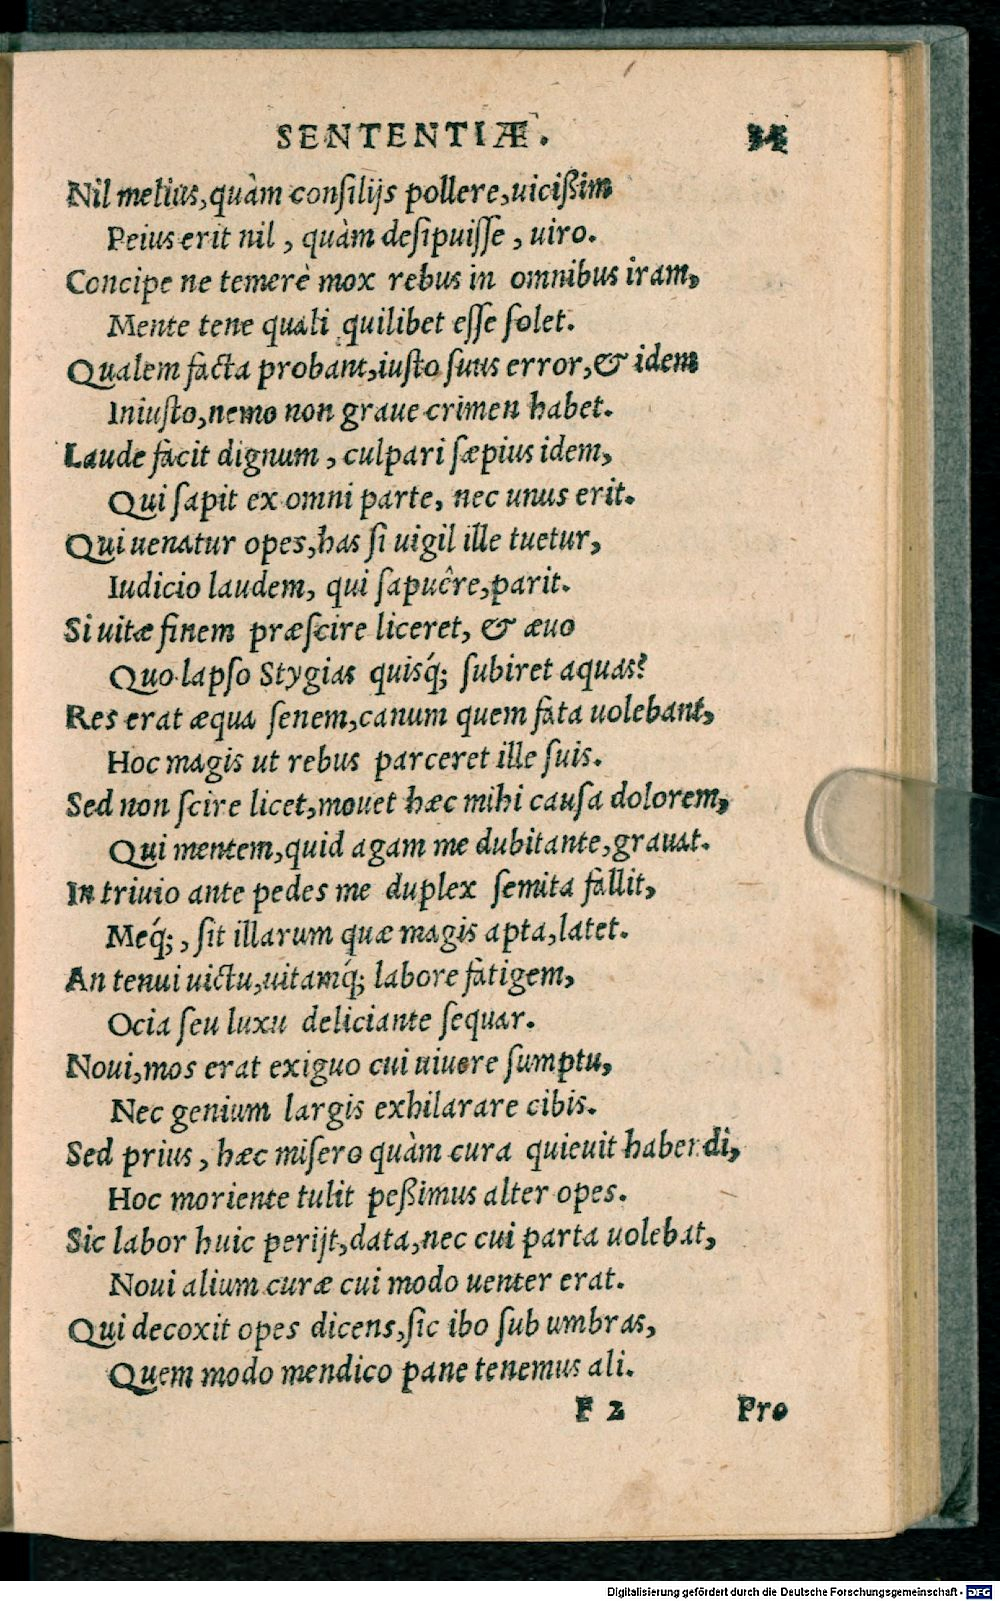 SENTENTIÆ.
Nil melius,quàm consilijs pollere,uicißim
Peius erit nil , quàm desipuisse , uiro.
Concipe ne temerè mox rebus in omnibus iram,
Mente tene quali quilibet esse solet.
Qualem facta probant,iusto suus error,& idem
Iniusto,nemo non graue crimen habet.
Laude facit dignum , culpari sæpius idem,
Qui sapit ex omni parte, nec unus erit.
Qui uenatur opes,has si uigil ille tuetur,
Iudicio laudem, qui sapuêre,parit.
Si uitæ finem præscire liceret, & æuo
Quo lapso Stygias quisq́; subiret aquas?
Res erat æqua senem,canum quem fata uolebant,
Hoc magis ut rebus parceret ille suis.
Sed non scire licet,mouet hæc mihi causa dolorem,
Qui mentem,quid agam me dubitante,grauat.
In triuio ante pedes me duplex semita fallit,
Meq́; , sit illarum quæ magis apta,latet.
An tenui uictu,uitamq́; labore fatigem,
Ocia seu luxu deliciante sequar.
Noui,mos erat exiguo cui uiuere sumptu,
Nec genium largis exhilarare cibis.
Sed prius , hæc misero quàm cura quieuit habendi,
Hoc moriente tulit peßimus alter opes.
Sic labor huic perijt,data,nec cui parta uolebat,
Noui alium curæ cui modo uenter erat.
Qui decoxit opes dicens,sic ibo sub umbras,
Quem modo mendico pane tenemus ali.
F 2 Pro
Digitalisierung gefördert durch die Deutsche Forschungsgemeinschaft - DFG